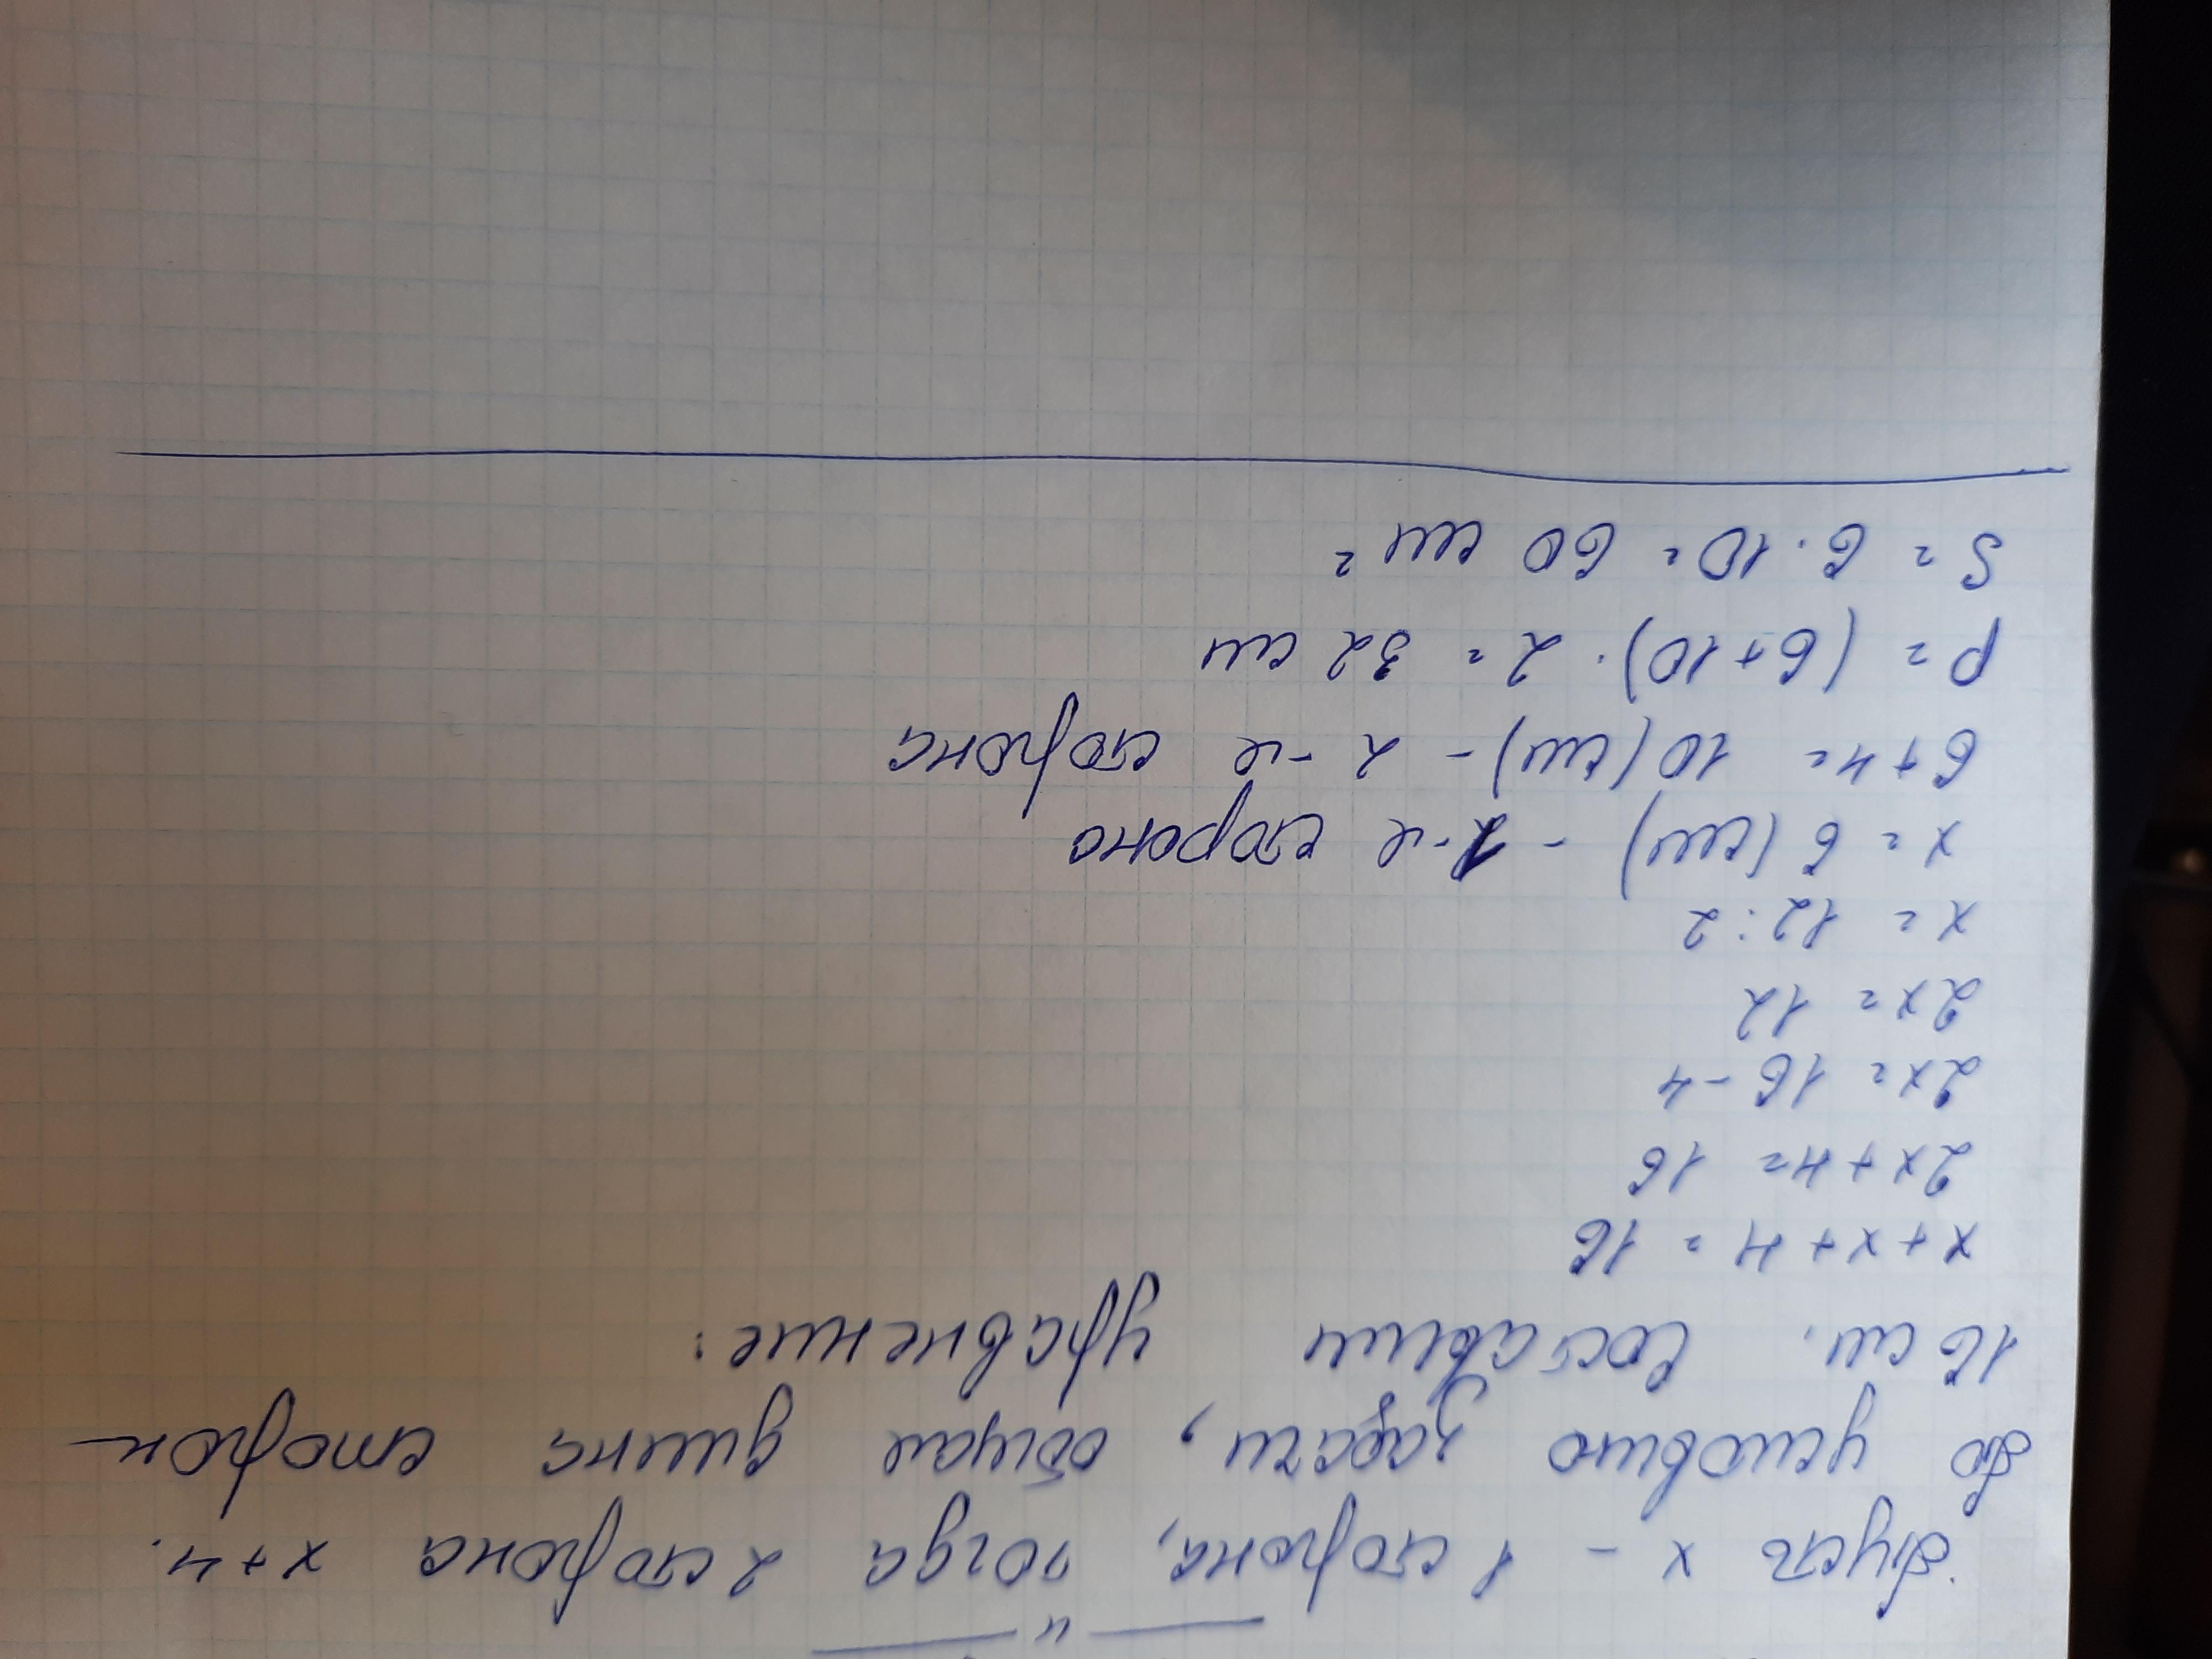 — " —
Пусть x - 1 сторона, тогда 2 сторона x+4.
По условию задачи, общая длина сторон
16 см. Составим уравнение:
x+x+4=16
2x+4=16
2x=16-4
2x=12
x=12:2
x=6(см) - 1-я сторона
6+4=10(см) - 2-я сторона
P=(6+10)·2=32 см
S=6·10=60 см²